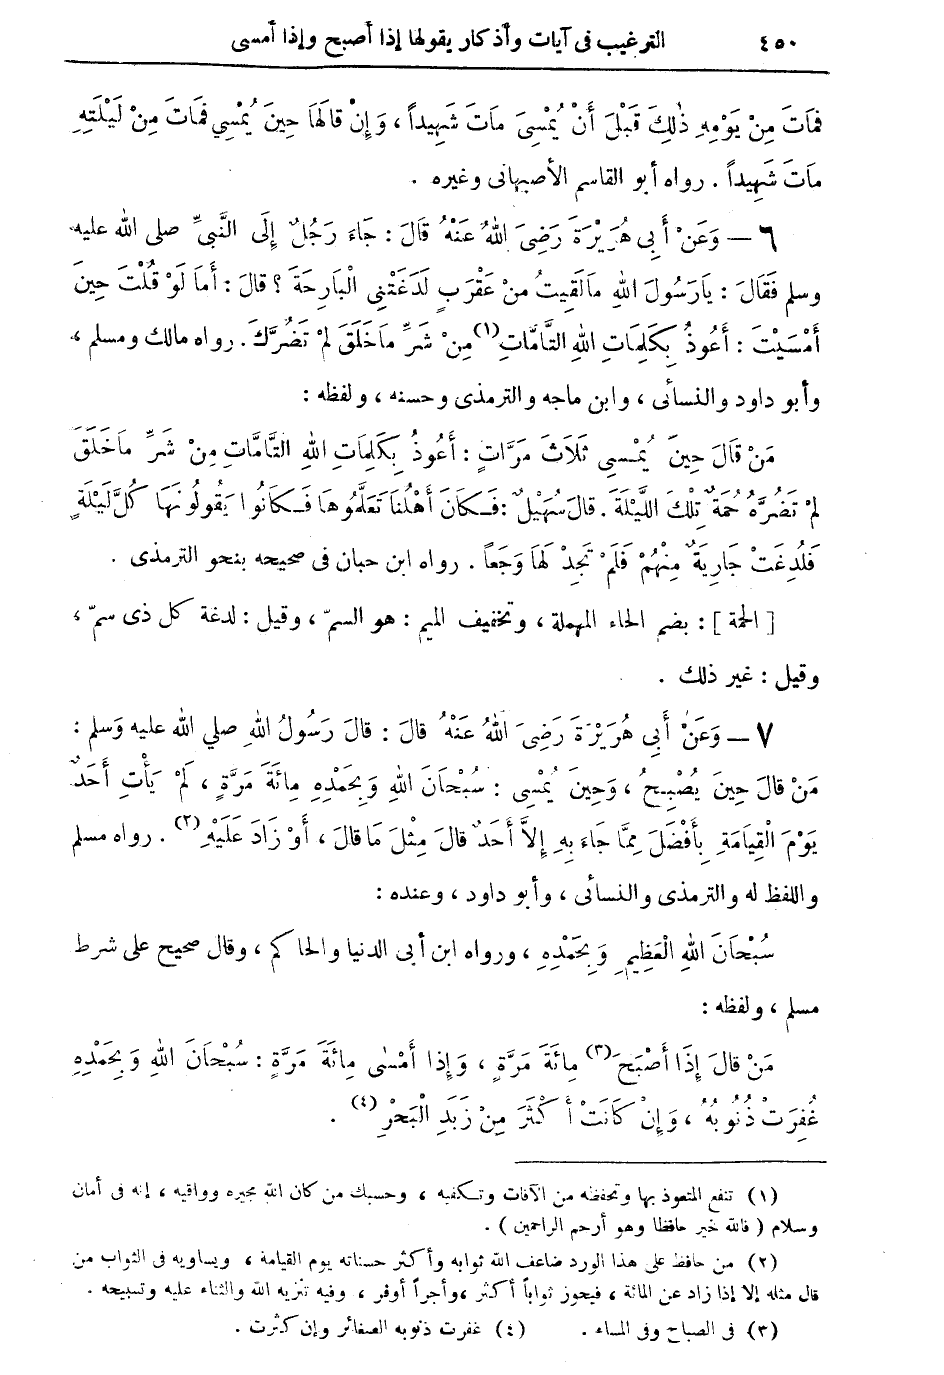 ٤٥٠ الترغيب فى آيات وأذكار يقولها إذا أصبح وإذا أمسى
فَمَاتَ مِنْ يَوْمِهِ ذٰلِكَ قَبْلَ أَنْ يُمْسِىَ مَاتَ شَهِيداً ، وَإِنْ قالَهَا حِينَ يُمْسِي فَمَاتَ مِنْ لَيْلَتِهِ
مَاتَ شَهِيداً . رواه أبو القاسم الأصبهانى وغيره .
٦ – وَعَنْ أَبِي هُرَيْرَةَ رَضِىَ اللهُ عَنْهُ قَالَ : جَاءَ رَجُلٌ إِلَى النَّبِىِّ صلى الله عليه
وسلم فَقَالَ : يَارَسُولَ اللهِ مَالَقِيتُ مِنْ عَقْرَبٍ لَدَغَتْنِى الْبَارِحَةَ ؟ قالَ : أَمَا لَوْ قُلْتَ حِينَ
أَمْسَيْتَ : أَعُوذُ بِكَلِمَاتِ اللهِ التَّامَّاتِ (١) مِنْ شَرِّ مَاخَلَقَ لَمْ تَضُرَّكَ . رواه مالك ومسلم ،
وأبو داود والنسائى ، وابن ماجه والترمذى وحسنه ، ولفظه :
مَنْ قَالَ حِينَ يُمْسِى ثَلَاثَ مَرَّاتٍ : أَعُوذُ بِكَلِمَاتِ اللهِ التَّامَّاتِ مِنْ شَرِّ مَاخَلَقَ
لَمْ تَضُرَّهُ حُمَةٌ تِلْكَ اللَّيْلَةَ . قالَ سُهَيْلٌ : فَكَانَ أَهْلُنَا تَعَلَّمُوهَا فَكَانُوا يَقُولُونَهَا كُلَّ لَيْلَةٍ
فَلُدِغَتْ جَارِيَةٌ مِنْهُمْ فَلَمْ تَجِدْ لَهَا وَجَعاً . رواه ابن حبان فى صحيحه بنحو الترمذى .
[ الحمة ] : بضم الحاء المهملة ، وتخفيف الميم : هو السمّ ، وقيل : لدغة كل ذى سمّ ،
وقيل : غير ذلك .
٧ – وَعَنْ أَبِي هُرَيْرَةَ رَضِىَ اللهُ عَنْهُ قالَ : قالَ رَسُولُ اللهِ صلي الله عليه وَسلم :
مَنْ قالَ حِينَ يُصْبِحُ ، وَحِينَ يُمْسِى : سُبْحَانَ اللهِ وَبِحَمْدِهِ مِائَةَ مَرَّةٍ ، لَمْ يَأْتِ أَحَدٌ
يَوْمَ الْقِيَامَةِ بِأَفْضَلَ مِمَّا جَاءَ بِهِ إِلاَّ أَحَدٌ قالَ مِثْلَ مَا قالَ ، أَوْ زَادَ عَلَيْهِ (٢) . رواه مسلم
واللفظ له والترمذى والنسائى ، وأبو داود ، وعنده :
سُبْحَانَ اللهِ الْعَظِيمِ وَبِحَمْدِهِ ، ورواه ابن أبى الدنيا والحاكم ، وقال صحيح على شرط
مسلم ، ولفظه :
مَنْ قالَ إِذَا أَصْبَحَ (٣) مِائَةَ مَرَّةٍ ، وَإِذا أَمْسٰى مِائَةَ مَرَّةٍ : سُبْحَانَ اللهِ وَبِحَمْدِهِ
غُفِرَتْ ذُنُوبُهُ ، وَإِنْ كَانَتْ أَكْثَرَ مِنْ زَبَدِ الْبَحْرِ (٤) .
(١) تنفع المتعوذ بها وتحفظه من الآفات وتكفيه ، وحسبك من كان الله مجيره وواقيه ، إنه فى أمان
وسلام ( فالله خير حافظا وهو أرحم الراحمين ) .
(٢) من حافظ على هذا الورد ضاعف الله ثوابه وأكثر حسناته يوم القيامة ، ويساويه فى الثواب من
قال مثله إلا إذا زاد عن المائة ، فيحوز ثواباً أكثر ، وأجراً أوفر ، وفيه تنزيه الله والثناء عليه وتسبيحه .
(٣) فى الصباح وفى المساء . (٤) غفرت ذنوبه الصغائر وإن كثرت .